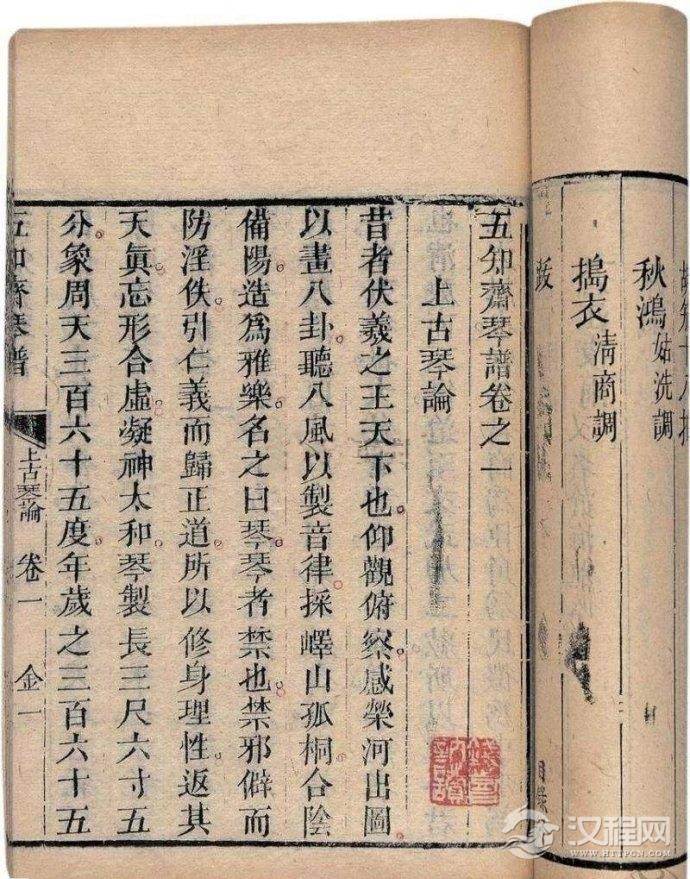 秋鴻 姑洗調
搗衣 清商調
跋
五知齋琴譜卷之一
上古琴論
昔者伏羲之王天下也仰觀俯察感榮河出圖
以畫八卦聽八風以製音律採嶧山孤桐合陰
備陽造爲雅樂名之曰琴琴者禁也禁邪僻而
防淫佚引仁義而歸正道所以修身理性返其
天眞忘形合虛凝神太和琴製長三尺六寸五
分象周天三百六十五度年歲之三百六十五
五知齋琴譜
上古琴論
卷一
金一
汉程网
WWW.HTTPCN.COM